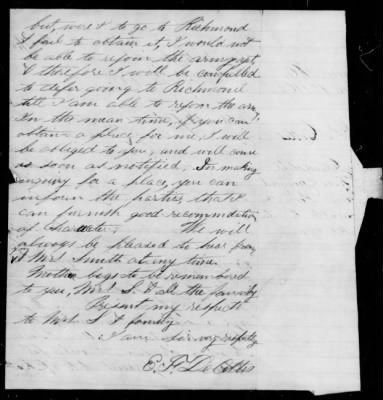 but, were I to go to Richmond
& fail to obtain it, I would not
be able to rejoin the army yet,
& therefore I will be compelled
to defer going to Richmond
till I am able to rejoin the army
In the mean time, if you can
obtain a place for me, I will
be obliged to you, and will come
as soon as notified. In making
inquiry for a place, you can
inform the parties, that I
can furnish good recommendation
of Character We will
always be pleased to hear from
Mrs Smith at any time.
Mother begs to be remembered
to you, Mrs S. & all the family
Present my respects
to Mrs S & family
I am Sir very respectfly
E. F.